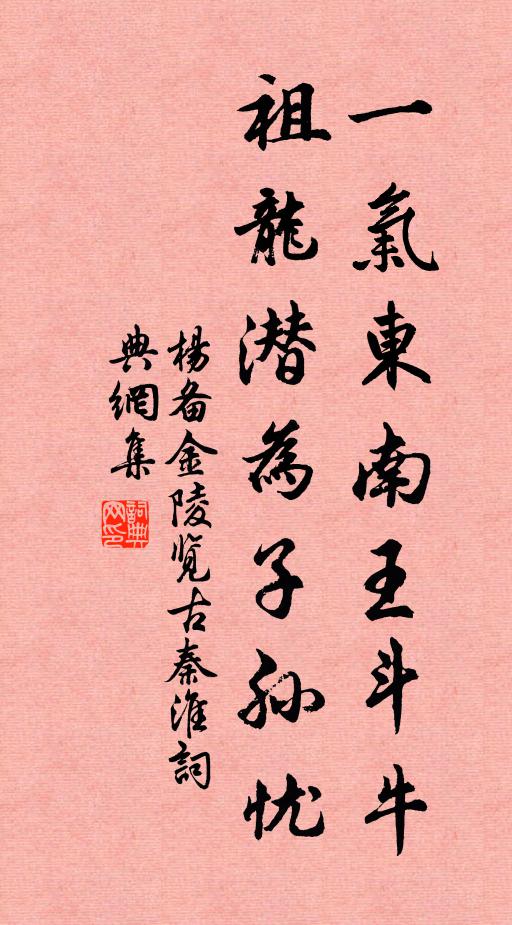 一氣東南王斗牛
祖龍潜為子孫忧
楊备金陵览古秦淮詞
典網集
詞典
网印